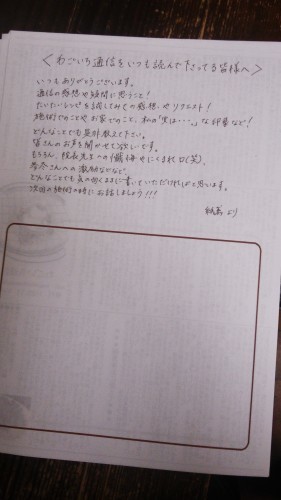 ＜わごいち通信をいつも読んで下さってる皆様へ＞
いつもありがとうございます。
通信の感想や疑問に思うこと！
たいたいレシピを試してみての感想やリクエスト！
施術でのことやお家でのこと、私の「実は・・・。」な印象など！
どんなことでも是非教えて下さい。
皆さんのお声を聞かせて欲しいです。
もちろん、院長先生への懺悔やにくまれ口(笑)、
さんへの激励などなど、
どんなことでも気の向くままに書いていただければと思います。
次回の施術の時にお話しましょう!!!
より